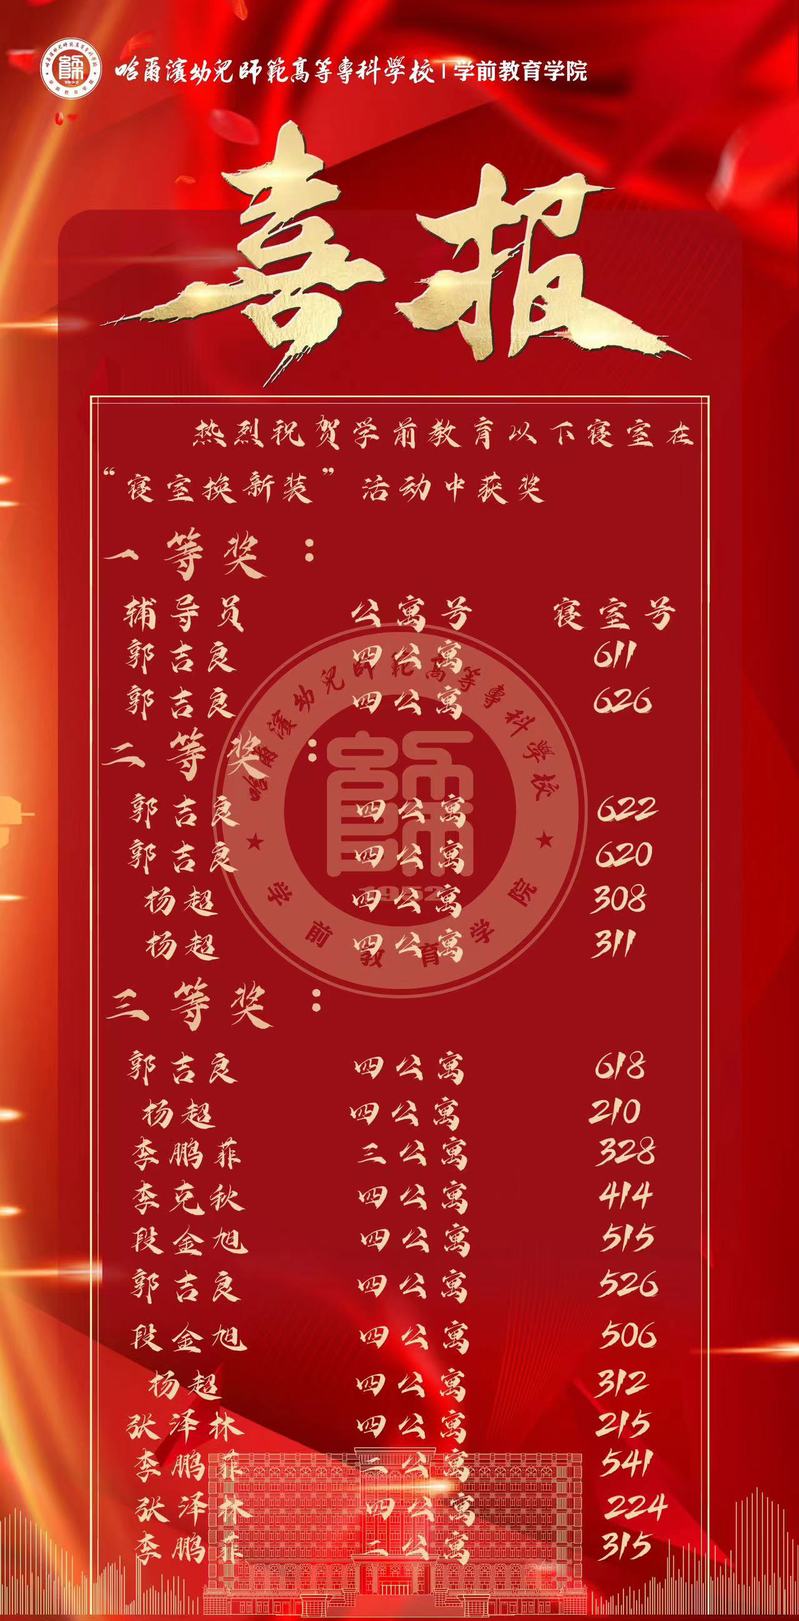 哈爾濱幼兒師範高等專科學校 | 学前教育学院
喜报
热烈祝贺学前教育以下寝室在
“寝室换新装”活动中获奖
一等奖：
辅导员 公寓号 寝室号
郭吉良 四公寓 611
郭吉良 四公寓 626
二等奖：
郭吉良 四公寓 622
郭吉良 四公寓 620
杨超 四公寓 308
杨超 四公寓 311
三等奖：
郭吉良 四公寓 618
杨超 四公寓 210
李鹏菲 三公寓 328
李克秋 四公寓 414
段金旭 四公寓 515
郭吉良 四公寓 526
段金旭 四公寓 506
杨超 四公寓 312
张泽林 四公寓 215
李鹏菲 二公寓 541
张泽林 四公寓 224
李鹏菲 二公寓 315
哈爾濱幼兒師範高等專科學校
師
1952
学前教育学院